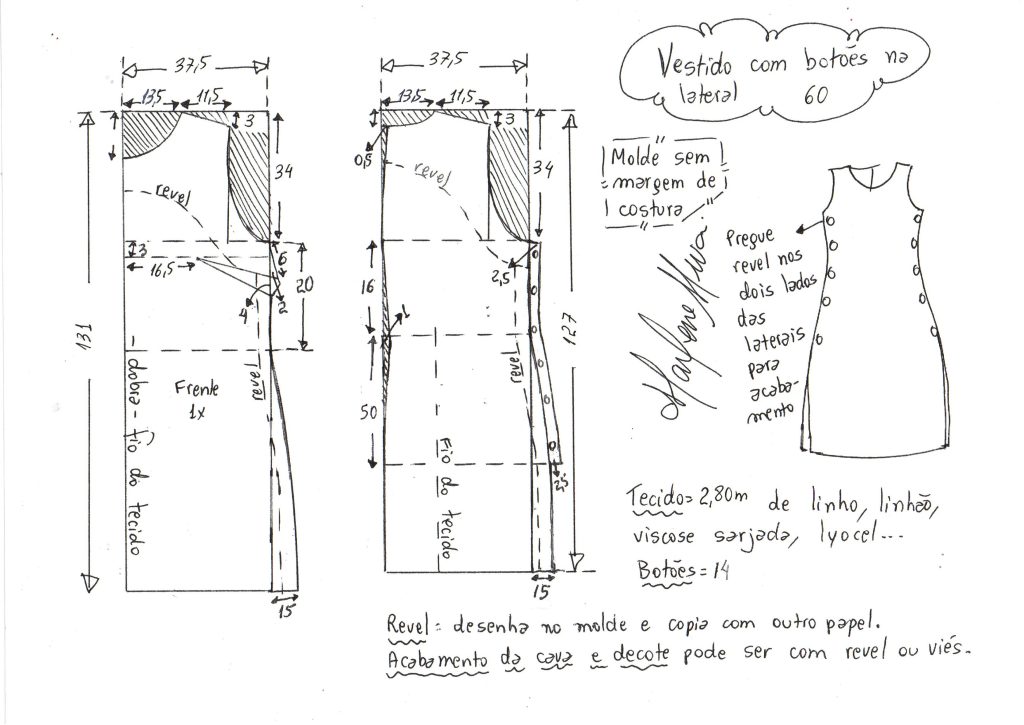 Vestido com botões na
lateral 60
37,5
13,5 11,5
3
34
revel
3
16,5
6
2
4
20
131
revel
Frente
1x
dobra - fio do tecido
15
37,5
13,5 11,5
3
0,5
34
revel
2,5
16
1
50
revel
127
Fio do tecido
2,5
15
Molde sem
margem de
costura
Marlene Mukai
Pregue
revel nos
dois lados
das
laterais
para
acaba-
mento
Tecido = 2,80m de linho, linhão,
viscose sarjada, lyocel...
Botões = 14
Revel = desenha no molde e copia com outro papel.
Acabamento da cava e decote pode ser com revel ou viés.